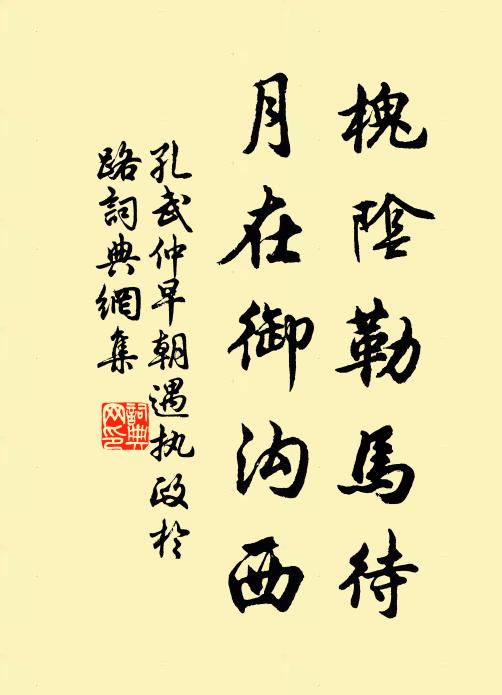 槐陰勒馬待
月在御沟西
孔武仲早朝遇执政於
路詞典網集
詞典网印